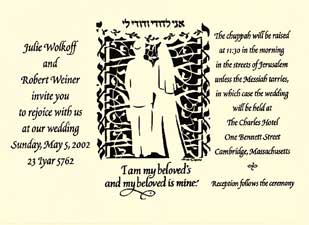 Julie Wolkoff
and
Robert Weiner
invite you
to rejoice with us
at our wedding
Sunday, May 5, 2002
23 Iyar 5762
אני לדודי ודודי לי
I am my beloved's
and my beloved is mine.
The chuppah will be raised
at 11:30 in the morning
in the streets of Jerusalem
unless the Messiah tarries,
in which case the wedding
will be held at
The Charles Hotel
One Bennett Street
Cambridge, Massachusetts
Reception follows the ceremony